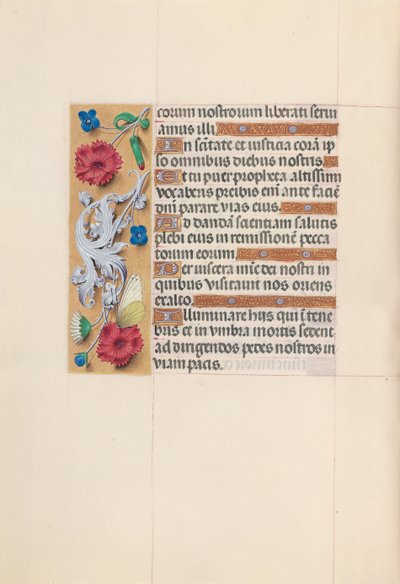 corum nostrorum liberati serui
amus illi
In sc̄itate et iusticia corā ip
so omnibus diebus nostris
Et tu puer propheta altissimi
vocaberis preibis eni ante faciē
dn̄i parare vias eius
Ad dandā scientiam salutis
plebi eius in remissionē pecca
torum eorum
Per uiscera mīe dei nostri in
quibus visitauit nos oriens
ex alto
Illuminare hiis qui ī tene
bris et in vmbra mortis sedent
ad dirigendos pedes nostros in
viam pacis